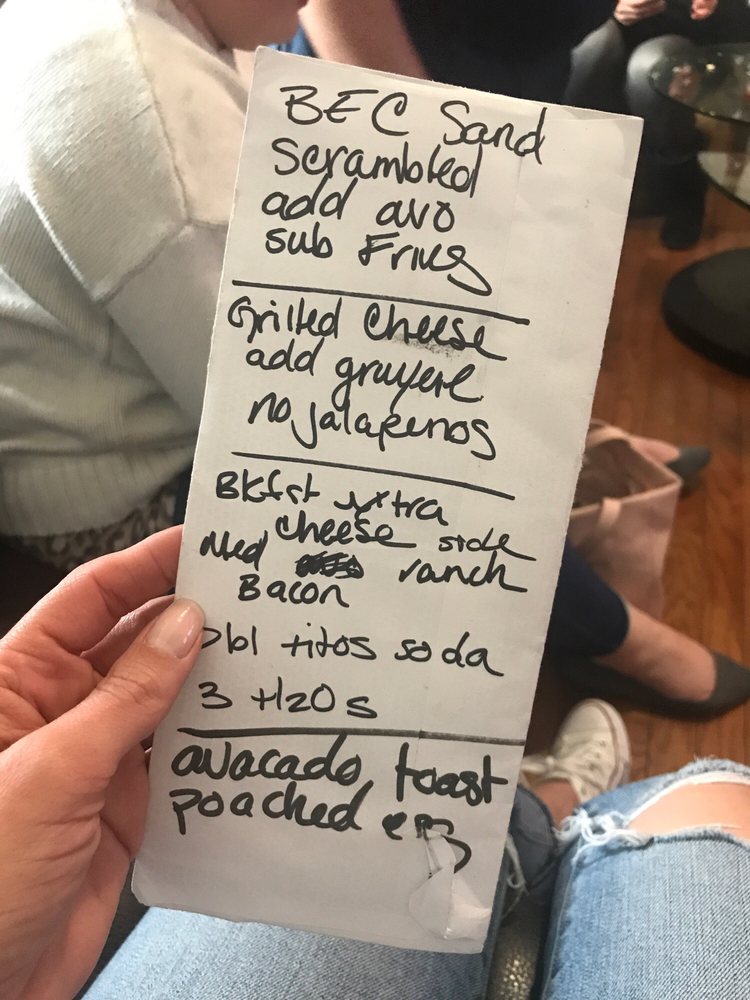 BEC Sand
Scrambled
add avo
sub Fries
Grilled Cheese
add gruyere
no jalapenos
Bkfst xtra
cheese side
Med ranch
Bacon
Dbl titos soda
3 H2Os
avacado toast
poached egg